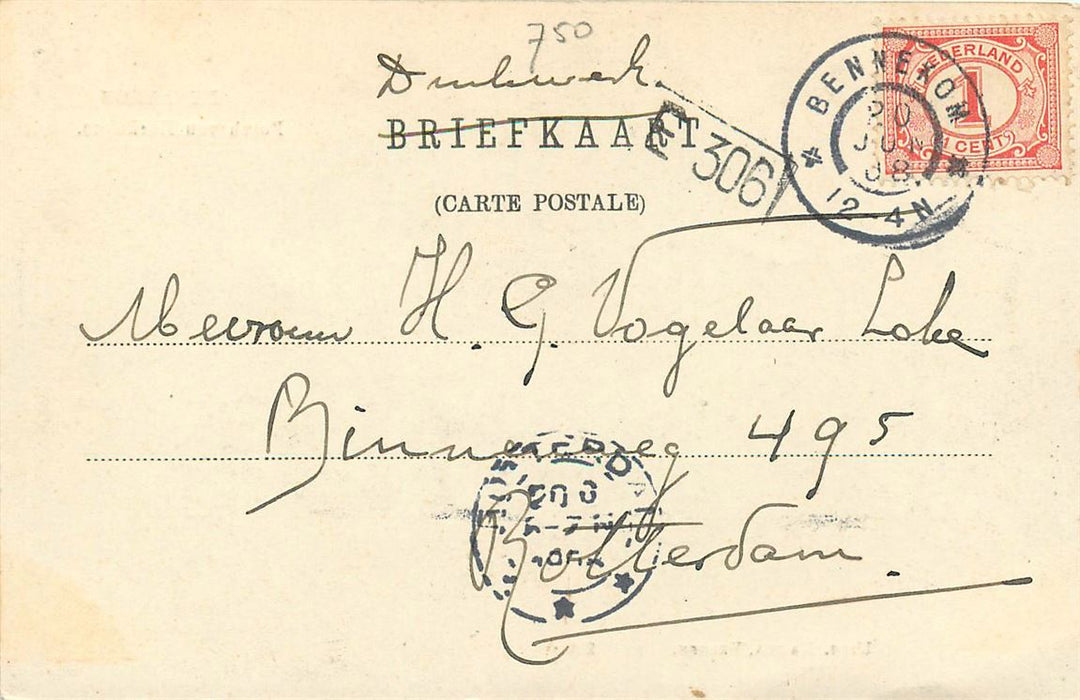 750
Drukwerk.
BRIEFKAART
(CARTE POSTALE)
306
NEDERLAND
1
1 CENT
BENNEKOM
20
JUN
08
12-4N
Mevrouw H. G. Vogelaar Loke
Binnenweg 495
Rotterdam.
ROTTERDAM